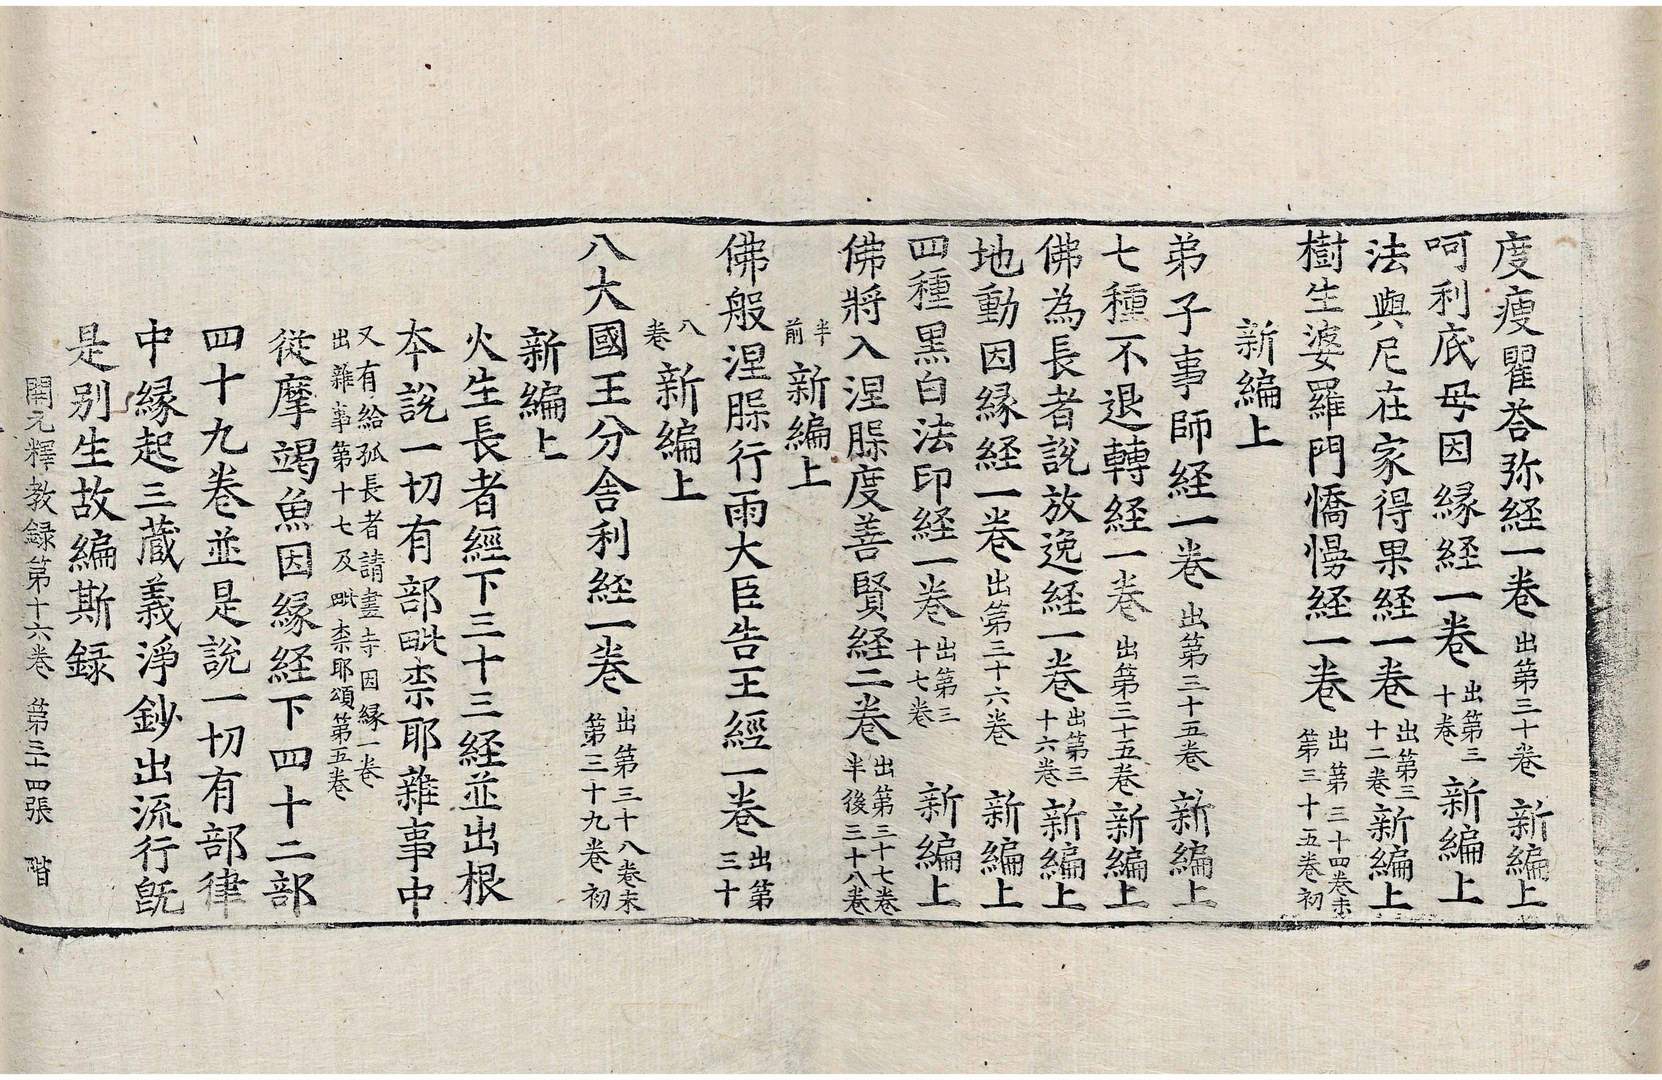 度瘦瞿荅弥経一巻 出第三十巻 新編上
呵利底母因縁経一巻 出第三十巻 新編上
法與尼在家得果経一巻 出第三十二巻 新編上
樹生婆羅門憍慢経一巻 出第三十四巻末第三十五巻初
新編上
弟子事師経一巻 出第三十五巻 新編上
七種不退轉経一巻 出第三十五巻 新編上
佛為長者說放逸経一巻 出第三十六巻 新編上
地動因縁経一巻 出第三十六巻 新編上
四種黒白法印経一巻 出第三十七巻 新編上
佛將入涅腬度善賢経二巻 出第三十七巻半後三十八巻
半前 新編上
佛般涅腬行雨大臣告王經一巻 出第三十
八巻 新編上
八大國王分舍利経一巻 出第三十八巻末第三十九巻初
新編上
火生長者經下三十三経並出根
本說一切有部毗柰耶雜事中
又有給孤長者請畫寺因縁一巻
出雜事第十七及毗柰耶頌第五巻
從摩竭魚因縁経下四十二部
四十九巻並是說一切有部律
中縁起三藏義淨鈔出流行旣
是別生故編斯録
開元釋教録第十六巻 第三十四張 階